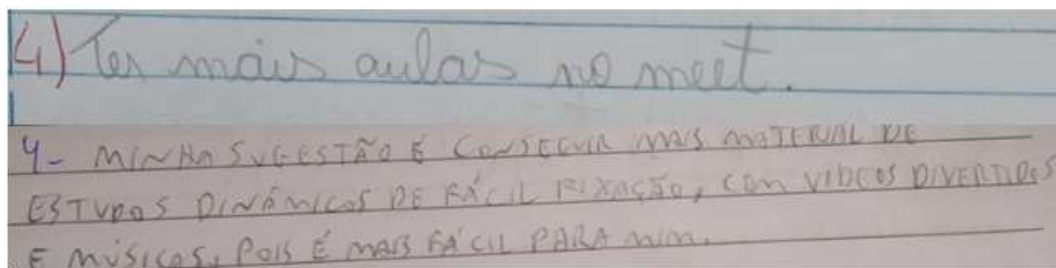 4) Ter mais aulas no meet.
4- MINHA SUGESTÃO É CONSEGUIR MAIS MATERIAL DE
ESTUDOS DINÂMICOS DE FÁCIL FIXAÇÃO, COM VIDEOS DIVERTIDOS
E MÚSICAS, POIS É MAIS FÁCIL PARA MIM.